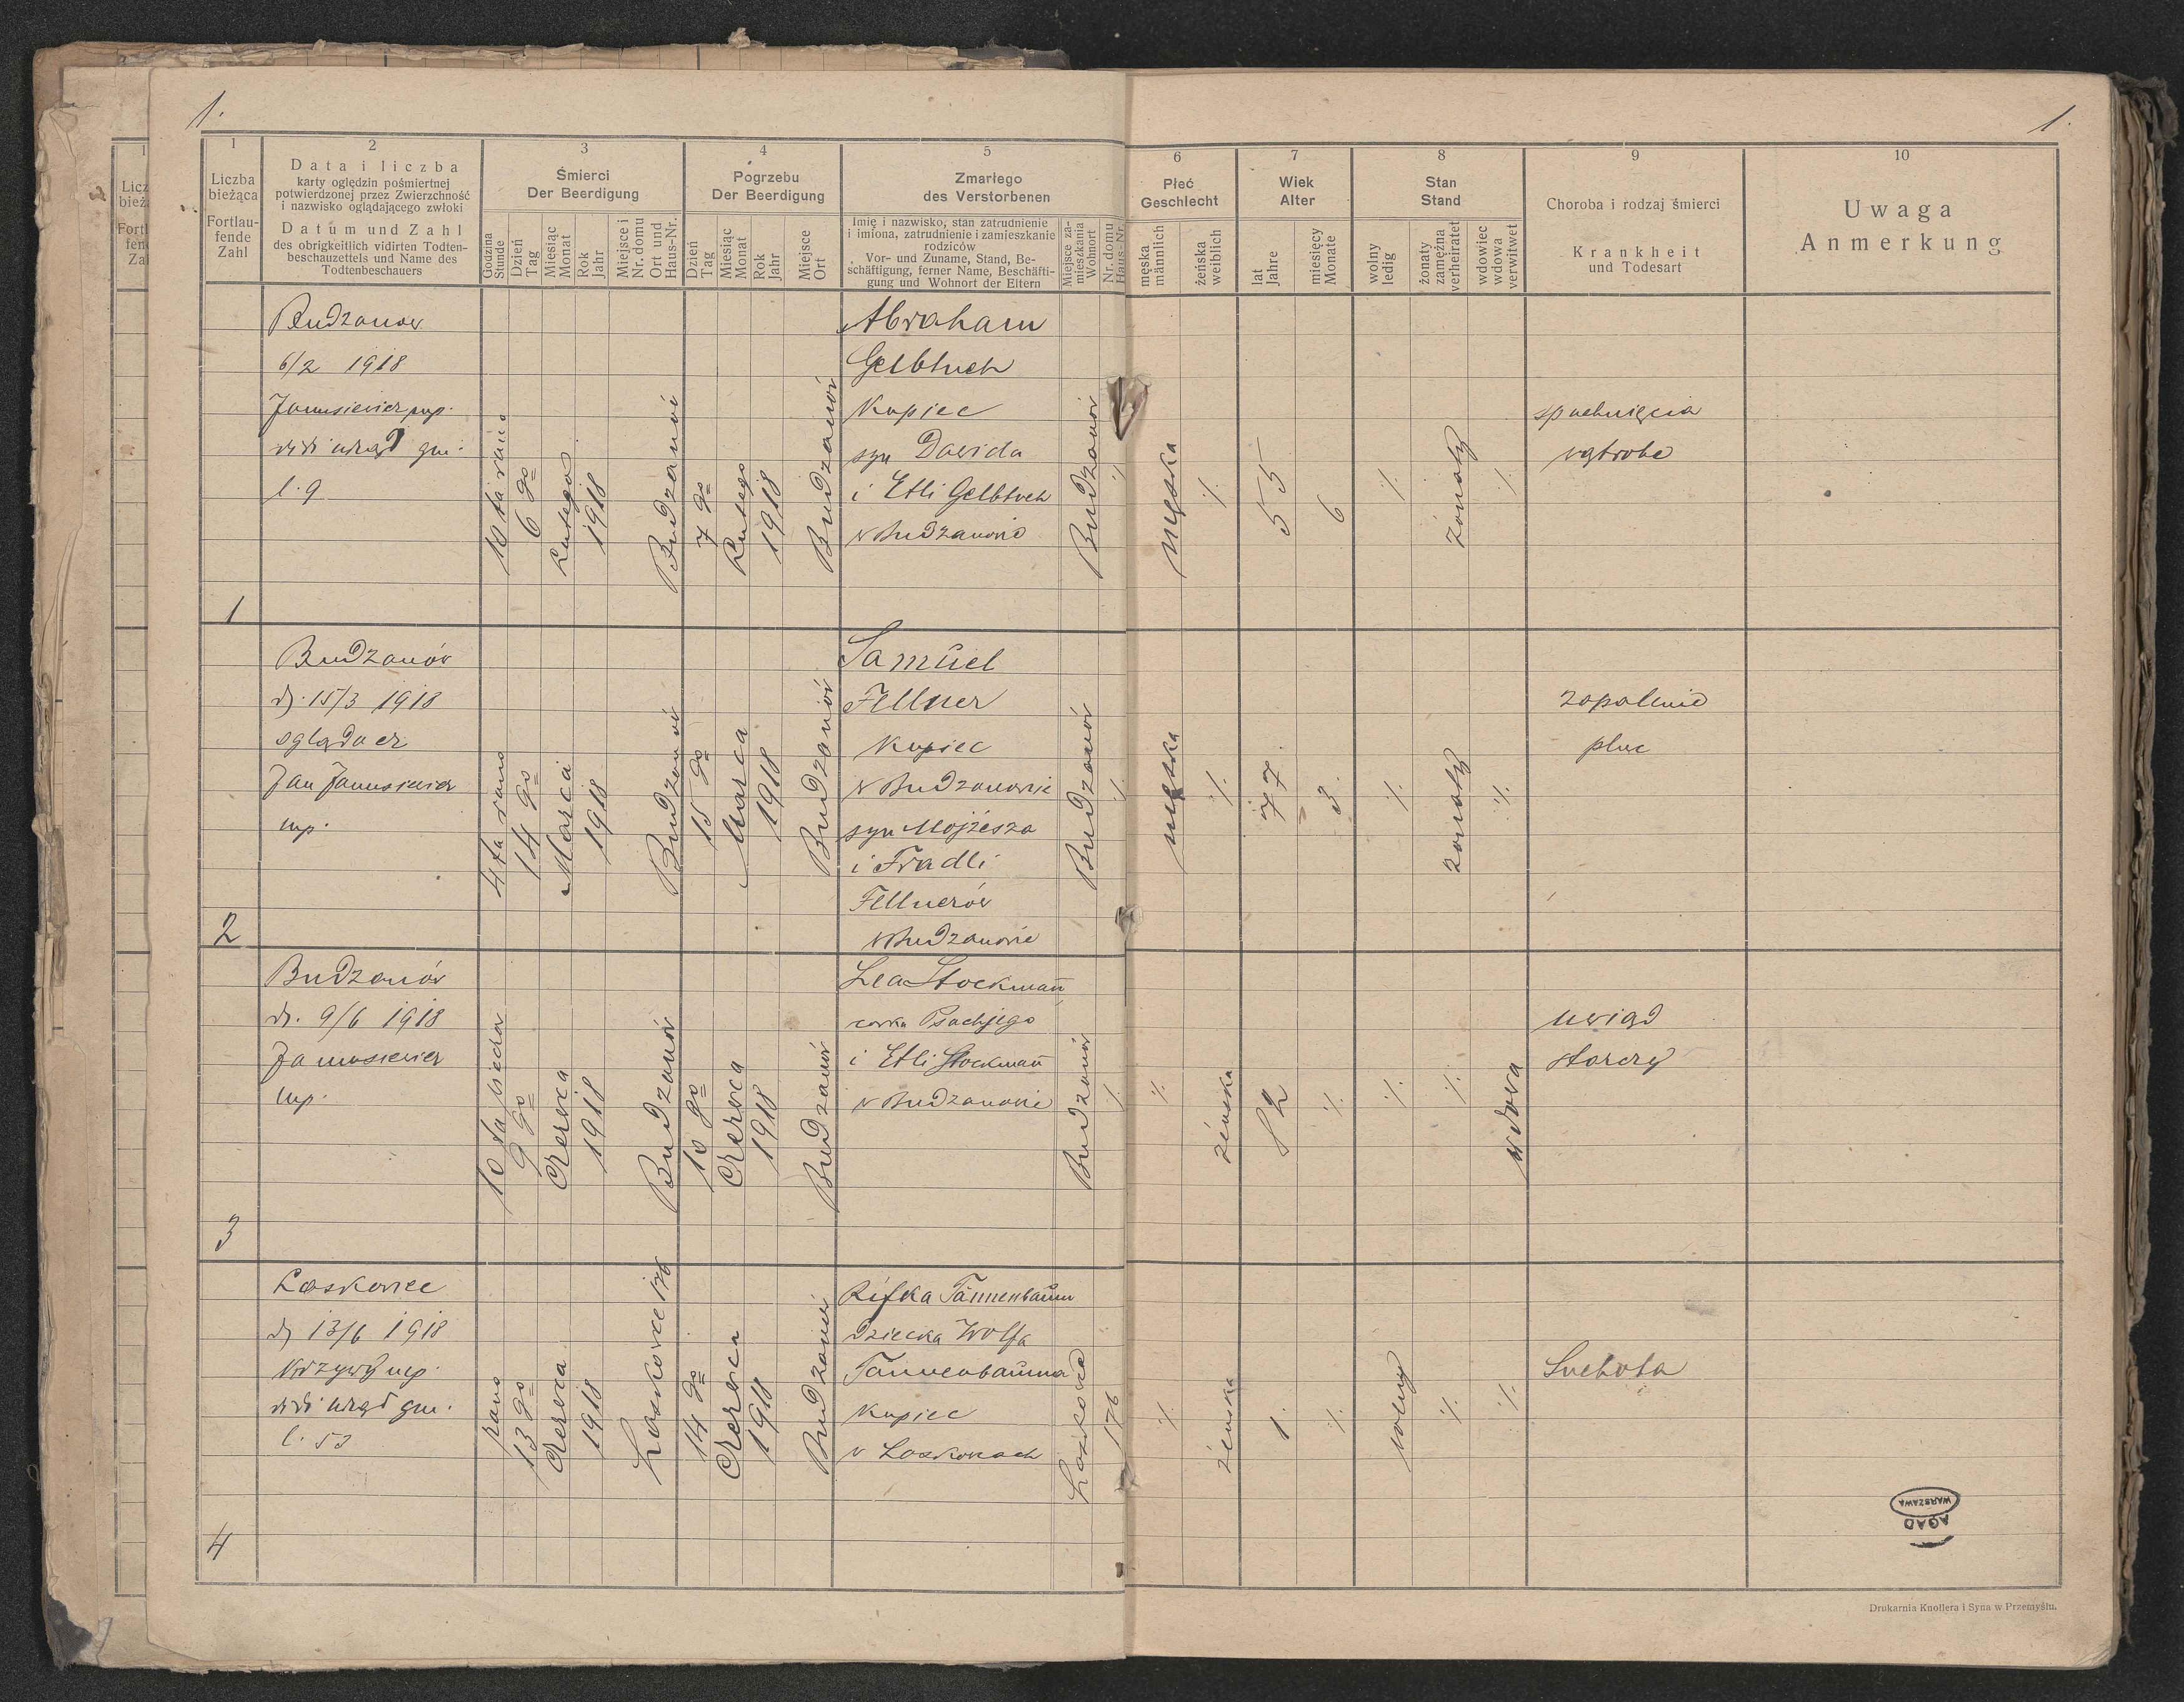 1.
1.
1
Liczba
bieżąca
Fortlau-
fende
Zahl
2
Data i liczba
karty oględzin pośmiertnej
potwierdzonej przez Zwierzchność
i nazwisko oglądającego zwłoki
Datum und Zahl
des obrigkeitlich vidirten Todten-
beschauzettels und Name des
Todtenbeschauers
3
Śmierci
Der Beerdigung
Godzina
Stunde
Dzień
Tag
Miesiąc
Monat
Rok
Jahr
Miejsce i
Nr. domu
Ort und
Haus-Nr.
4
Pogrzebu
Der Beerdigung
Dzień
Tag
Miesiąc
Monat
Rok
Jahr
Miejsce
Ort
5
Zmarłego
des Verstorbenen
Imię i nazwisko, stan zatrudnienie
i imiona, zatrudnienie i zamieszkanie
rodziców
Vor- und Zuname, Stand, Be-
schäftigung, ferner Name, Beschäfti-
gung und Wohnort der Eltern
Miejsce za-
mieszkania
Wohnort
Nr. domu
Haus-Nr.
6
Płeć
Geschlecht
męska
männlich
żeńska
weiblich
7
Wiek
Alter
lat
Jahre
miesięcy
Monate
8
Stan
Stand
wolny
ledig
żonaty
zamężna
verheiratet
wdowiec
wdowa
verwitwet
9
Choroba i rodzaj śmierci
Krankheit
und Todesart
10
Uwaga
Anmerkung
1
Budzanow
6/2 1918
Janusiewicz mp.
vidi urząd gm.
l. 9
10 ta rano
6 go
Lutego
1918
Budzanów
7 go
Lutego
1918
Budzanów
Abraham
Gelbtuch
Kupiec
syn Dawida
i Etli Gelbtuch
w Budzanowie
Budzanów
./.
męska
./.
55
6
./.
żonaty
./.
spuchnięcia
wątrobe
2
Budzanów
d. 15/3 1918
oglądacz
Jan Janusiewicz
mp.
4 ta rano
14 go
Marca
1918
Budzanów
15 go
Marca
1918
Budzanów
Samuel
Fellner
Kupiec
w Budzanowie
syn Mojżesza
i Fradli
Fellnerów
w Budzanowie
Budzanów
./.
męska
./.
77
3
./.
żonaty
./.
zapalenie
płuc
3
Budzanów
d. 9/6 1918
Janusiewicz
mp.
10 ta
9 go
Czerwca
1918
Budzanów
10 go
Czerwca
1918
Budzanów
Lea Stockman̄
corka Psachjego
i Etli Stockman̄
w Budzanowie
Budzanów
./.
./.
żeńska
82
./.
./.
./.
wdowa
uwiąd
starczy
4
Laskowce
d. 13/6 1918
mp.
vidi urząd gm.
l. 53
rano
13 go
Czerwca
1918
Laskowce 176
14 go
Czerwca
1918
Budzanów
Rifka Tannenbaum
dziecka Wolfa
Tannenbauma
Kupiec
w Laskowach
Laskowce
176
./.
żeńska
1.
./.
wolny
./.
./.
Suchota
WARSZAWA
AGAD
Drukarnia Knollera i Syna w Przemyślu.